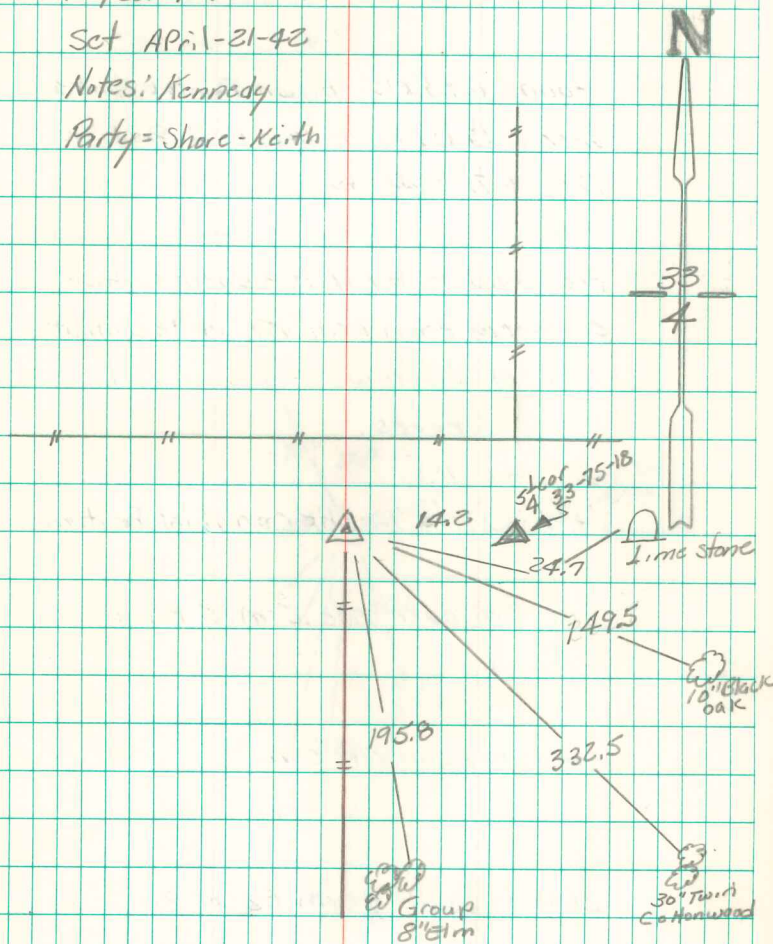 Set April-21-42
Notes: Kennedy
Party = Shore-Keith
N
33
4
1/4 cor
33-75-18
14.2
24.7
Lime stone
149.5
10" Black
oak
195.8
332.5
Group
8" Elm
30" Twin
Cottonwood